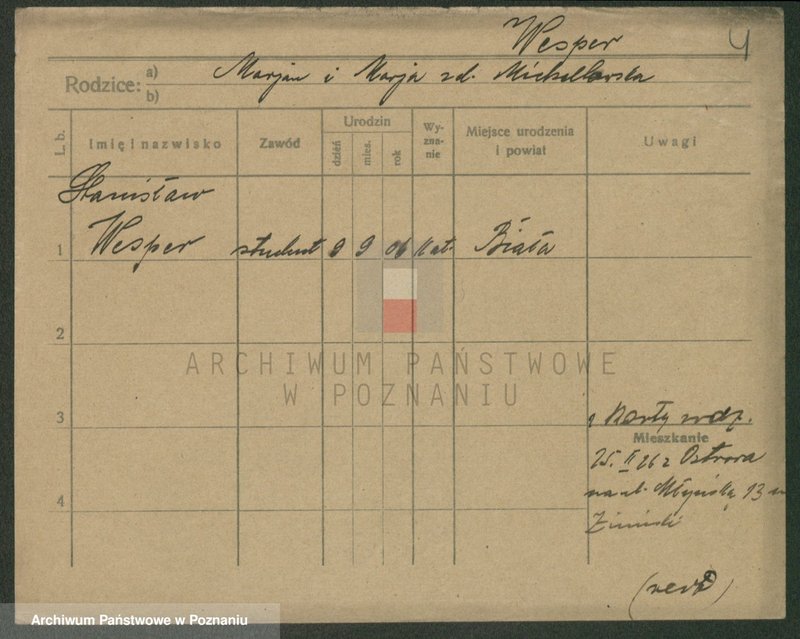 Wesper
4
Rodzice: a) Marjan i Marja zd.
b)
L. b.
Imię i nazwisko
Zawód
Urodzin
dzień
mies.
rok
Wy-
zna-
nie
Miejsce urodzenia
i powiat
Uwagi
Stanisław
1 Wesper student 9 9 06 kat. Biała
2
ARCHIWUM PAŃSTWOWE
W POZNANIU
3
Karty rodz.
Mieszkanie
25. II 26 z Ostrowa
na ul. 13
4
Archiwum Państwowe w Poznaniu